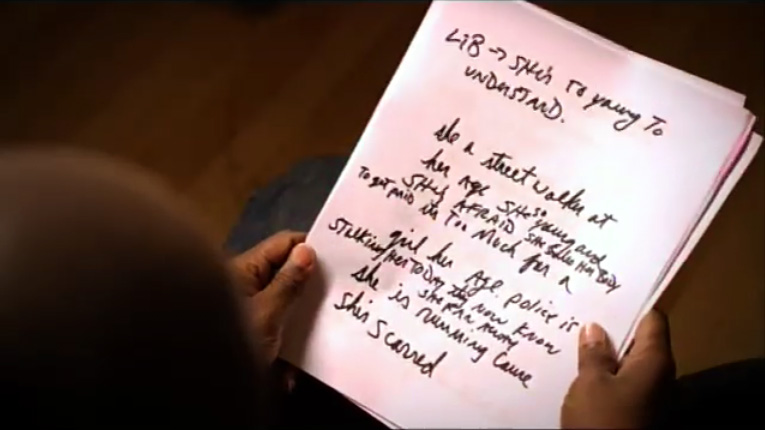 LiB → SHe's To young To
UNDERSTAND.
she a street walker at
her Age SHe so young and
SHe's AFRAID SHe Selles Her Body
To get paid its Too Much for a
girl her Age. police is
Stalking Her Today they Now Know
SHe RAN Away
she is running Cause
shes Scarred